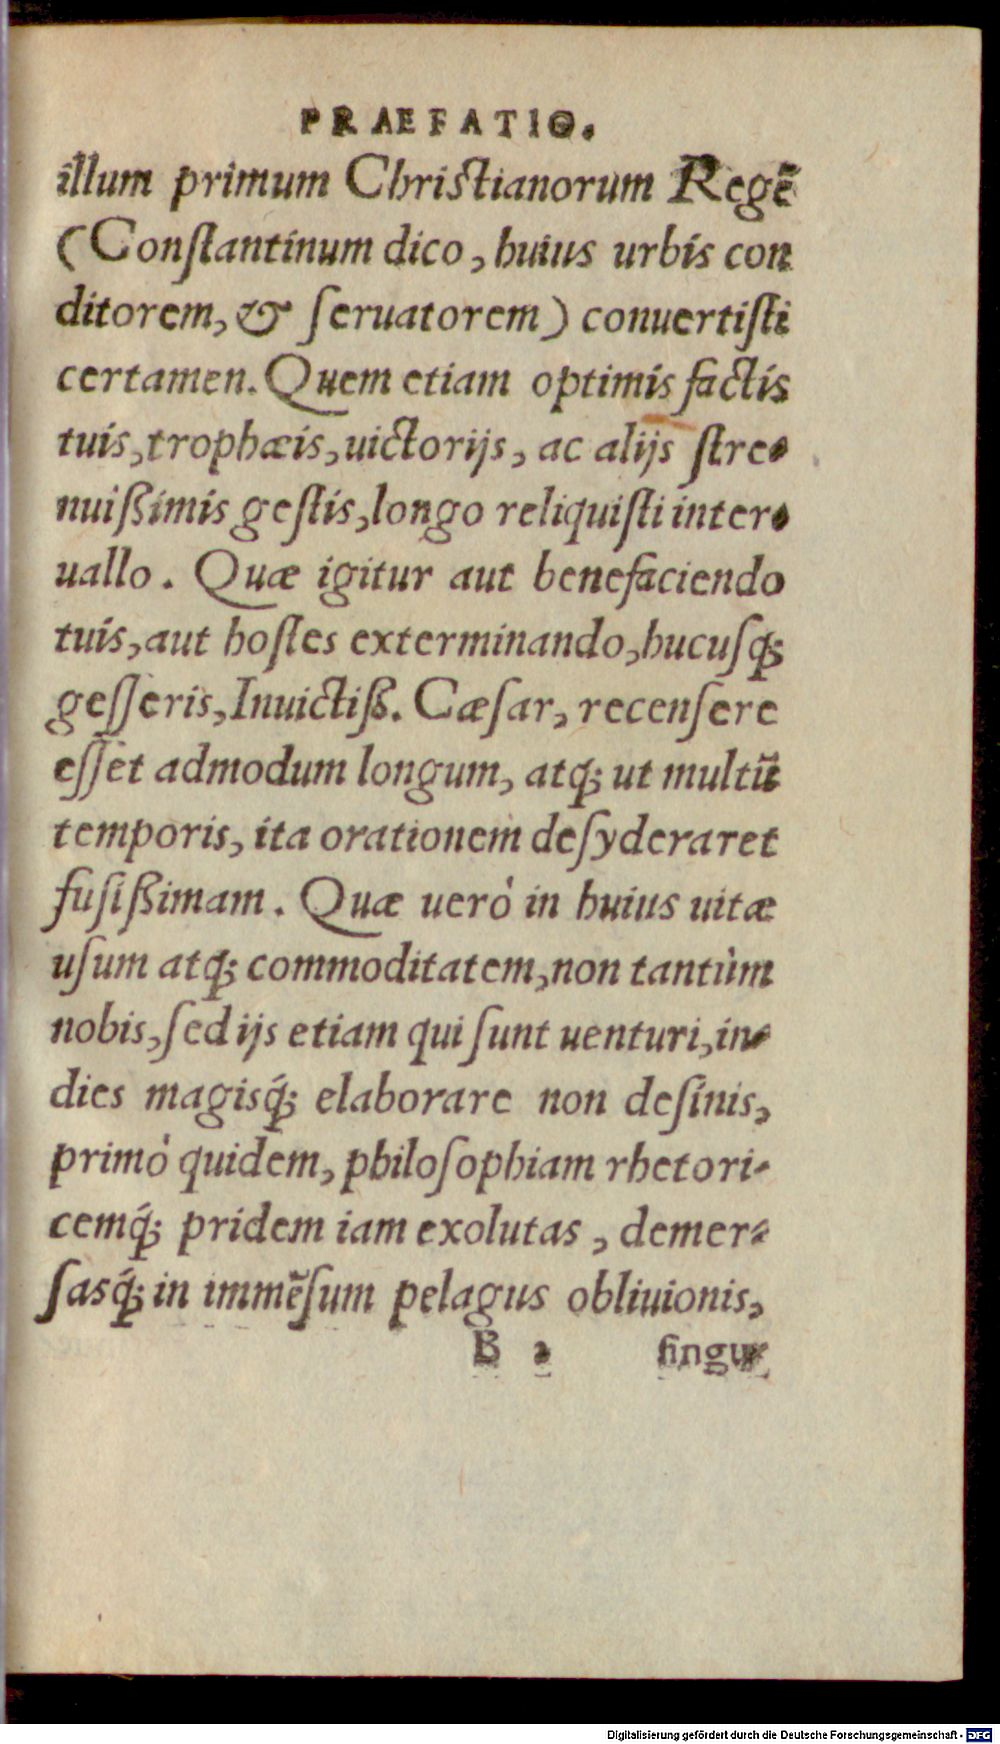 PRAEFATIO.
illum primum Christianorum Regē
(Conſtantinum dico, huius urbis con
ditorem, & ſeruatorem) conuertiſti
certamen. Quem etiam optimis factis
tuis, trophæis, uictorijs, ac alijs ſtre-
nuißimis geſtis, longo reliquiſti inter-
uallo. Quæ igitur aut benefaciendo
tuis, aut hoſtes exterminando, hucuſq;
geſſeris, Inuictiß. Cæſar, recenſere
eſſet admodum longum, atq; ut multū
temporis, ita orationem deſyderaret
fuſißimam. Quæ uerò in huius uitæ
uſum atq; commoditatem, non tantùm
nobis, ſed ijs etiam qui ſunt uenturi, in-
dies magisq́; elaborare non deſinis,
primò quidem, philoſophiam rhetori-
cemq́; pridem iam exolutas, demer-
ſasq́; in immēſum pelagus obliuionis,
B 2 ſingu-
Digitalisierung gefördert durch die Deutsche Forschungsgemeinschaft - DFG